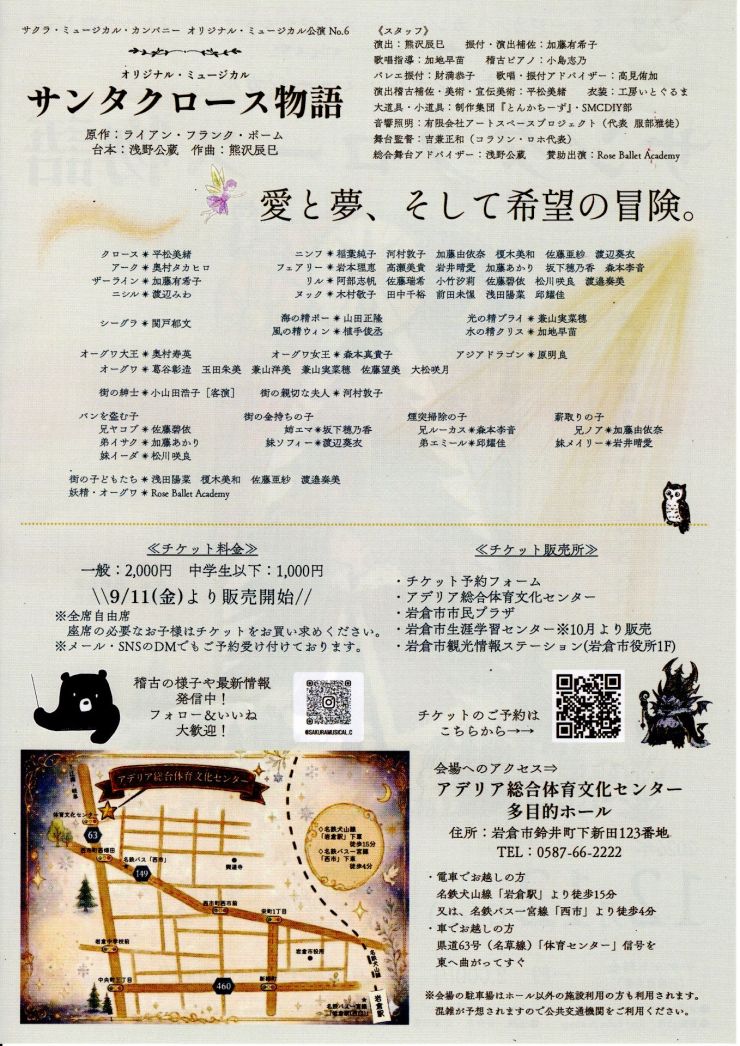 サクラ・ミュージカル・カンパニー オリジナル・ミュージカル公演 No.6
オリジナル・ミュージカル
サンタクロース物語
原作：ライアン・フランク・ボーム
台本：浅野公蔵　作曲：熊沢辰巳
《スタッフ》
演出：熊沢辰巳　振付・演出補佐：加藤有希子
歌唱指導：加地早苗　稽古ピアノ：小島志乃
バレエ振付：財満恭子　歌唱・振付アドバイザー：高見侑加
演出稽古補佐・美術・宣伝美術：平松美緒　衣装：工房いとぐるま
大道具・小道具：制作集団『とんかちーず』・SMCDIY部
音響照明：有限会社アートスペースプロジェクト（代表 服部雅徒）
舞台監督：吉兼正和（コラソン・ロホ代表）
総合舞台アドバイザー：浅野公蔵　賛助出演：Rose Ballet Academy
愛と夢、そして希望の冒険。
クロース＊平松美緒
アーク＊奥村タカヒロ
ザーライン＊加藤有希子
ニシル＊渡辺みわ
ニンフ＊稲葉純子　河村敦子　加藤由依奈　榎木美和　佐藤亜紗　渡辺葵衣
フェアリー＊岩本理恵　高瀬美貴　岩井晴愛　加藤あかり　坂下穂乃香　森本李音
リル＊阿部志帆　佐藤瑞希　小竹沙莉　佐藤碧依　松川咲良　渡邉奏美
ヌック＊木村敬子　田中千裕　前田未憬　浅田陽菜　邱耀佳
シーグラ＊関戸郁文
海の精ボー＊山田正隆
風の精ウィン＊植手俊丞
光の精ブライ＊兼山実菜穂
水の精クリス＊加地早苗
オーグワ大王＊奥村寿英　オーグワ女王＊森本真貴子　アジアドラゴン＊原明良
オーグワ＊葛谷彰造　玉田朱美　兼山洋美　兼山実菜穂　佐藤望美　大松咲月
街の紳士＊小山田浩子［客演］　街の親切な夫人＊河村敦子
パンを盗む子
兄ヤコブ＊佐藤碧依
弟イサク＊加藤あかり
妹イーダ＊松川咲良
街の金持ちの子
姉エマ＊坂下穂乃香
妹ソフィー＊渡辺葵衣
煙突掃除の子
兄ルーカス＊森本李音
弟エミール＊邱耀佳
薪取りの子
兄ノア＊加藤由依奈
妹メイリー＊岩井晴愛
街の子どもたち＊浅田陽菜　榎木美和　佐藤亜紗　渡邉奏美
妖精・オーグワ＊Rose Ballet Academy
≪チケット料金≫
一般：2,000円　中学生以下：1,000円
\\9/11(金)より販売開始//
※全席自由席
座席の必要なお子様はチケットをお買い求めください。
※メール・SNSのDMでもご予約受け付けております。
≪チケット販売所≫
・チケット予約フォーム
・アデリア総合体育文化センター
・岩倉市市民プラザ
・岩倉市生涯学習センター※10月より販売
・岩倉市観光情報ステーション(岩倉市役所1F)
稽古の様子や最新情報
発信中！
フォロー＆いいね
大歓迎！
@SAKURAMUSICAL.C
チケットのご予約は
こちらから→→
アデリア総合体育文化センター
体育文化センター
63
西市町西樽田
名鉄バス「西市」
149
開運寺
西市町西市前
栄町1丁目
岩倉中学校前
岩倉市役所
中央町三丁目
460
新柳町
名鉄犬山線
岩倉駅
名鉄バス一宮線
◇名鉄犬山線
「岩倉駅」下車
徒歩15分
◇名鉄バス一宮線
「西市」下車
徒歩4分
会場へのアクセス⇒
アデリア総合体育文化センター
多目的ホール
住所：岩倉市鈴井町下新田123番地
TEL：0587-66-2222
・電車でお越しの方
名鉄犬山線「岩倉駅」より徒歩15分
又は、名鉄バス一宮線「西市」より徒歩4分
・車でお越しの方
県道63号（名草線）「体育センター」信号を
東へ曲がってすぐ
※会場の駐車場はホール以外の施設利用の方も利用されます。
混雑が予想されますので公共交通機関をご利用ください。